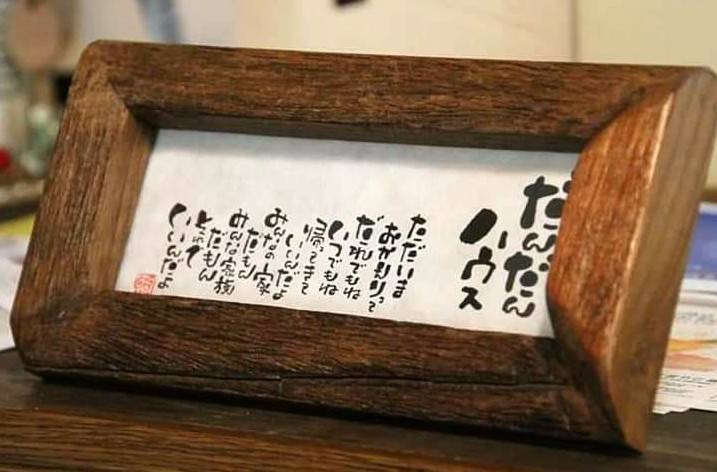 だんだん
ハウス
ただいま
おかえりって
だれでもね
いつでもね
帰ってきて
いいんだよ
みんなの家
だもん
みんな家族
だもん
いいんだよ